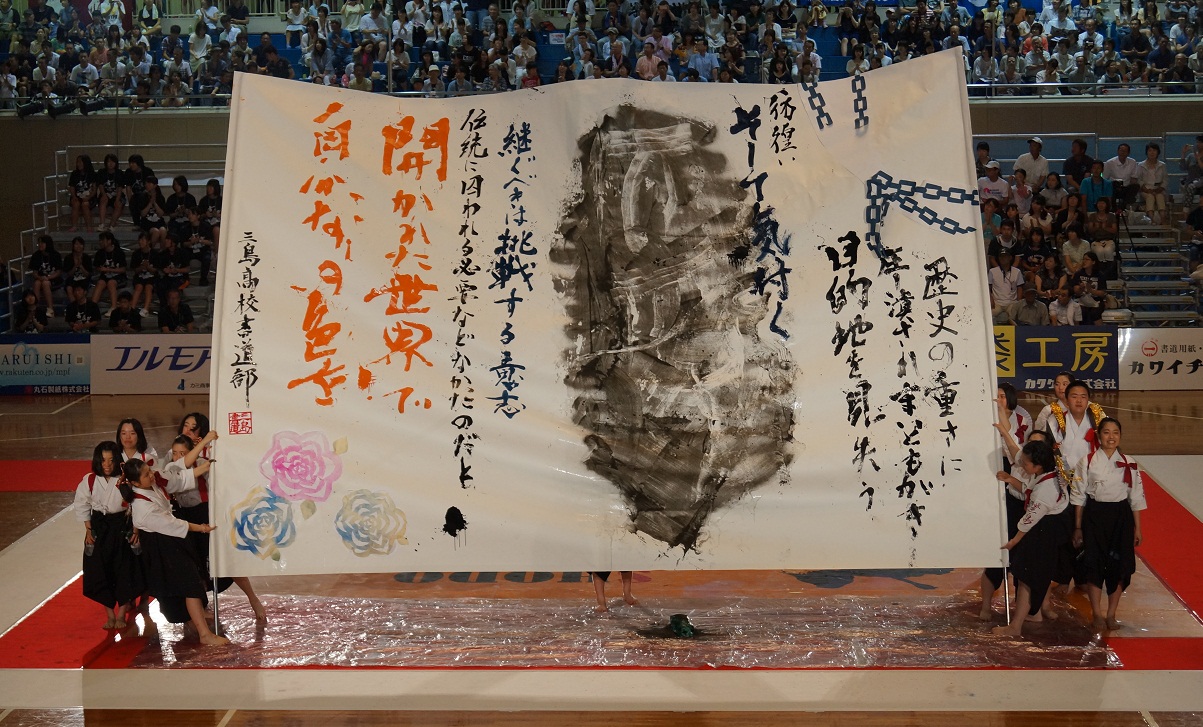 歴史の重さに
潰され
もがき
目的地を見失う
彷徨い
そして気付く
継ぐべきは挑戦する意志
伝統に囚われる必要などなかったのだと
開かれた世界で
自分なりの色を!
三島高校書道部
ARUISHI
w.rakuten.co.jp/mpf
丸石製紙株式会社
エルモア
工房
書道用紙・
カワイチ